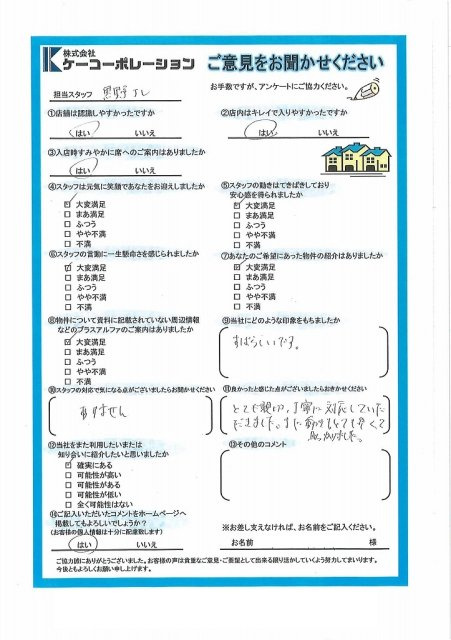 株式会社
ケーコーポレーション
ご意見をお聞かせください
お手数ですが、アンケートにご協力ください。
担当スタッフ 黒野
①店舗は認識しやすかったですか
はい いいえ
②店内はキレイで入りやすかったですか
はい いいえ
③入店時すみやかに席へのご案内はありましたか
はい いいえ
④スタッフは元気に笑顔であなたをお迎えしましたか
大変満足
まあ満足
ふつう
やや不満
不満
⑤スタッフの動きはてきぱきしており
安心感を得られましたか
大変満足
まあ満足
ふつう
やや不満
不満
⑥スタッフの言動に一生懸命さを感じられましたか
大変満足
まあ満足
ふつう
やや不満
不満
⑦あなたのご希望にあった物件の紹介はありましたか
大変満足
まあ満足
ふつう
やや不満
不満
⑧物件について資料に記載されていない周辺情報
などのプラスアルファのご案内はありましたか
大変満足
まあ満足
ふつう
やや不満
不満
⑨当社にどのような印象をもちましたか
すばらしいです。
⑩スタッフの対応で気になる点がございましたらお聞かせください
ありません
⑪良かったと感じた点がございましたらおきかせください
とても親切、丁寧に対応していた
だきました。また動きもとても早くて
助かりました。
⑫当社をまた利用したいまたは
知り合いに紹介したいと思いましたか
確実にある
可能性が高い
可能性がある
可能性が低い
全く可能性はない
⑬その他のコメント
⑭ご記入いただいたコメントをホームページへ
掲載してもよろしいでしょうか？
(お客様の個人情報は十分に配慮致します)
はい いいえ
※お差し支えなければ、お名前をご記入ください。
お名前 様
ご協力誠にありがとうございました。お客様の声は貴重なご意見・ご要望として出来る限り活かしていくよう努力してまいります。
今後ともよろしくお願い申し上げます。